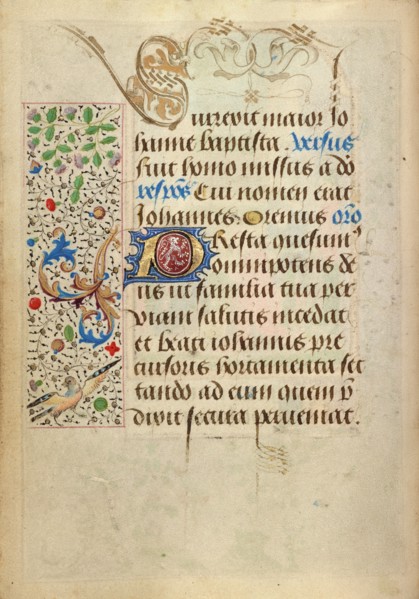 Surrexit maior Jo
hanne baptista. versus
fuit homo missus a deo
respons Cui nomen erat
Johannes. Oremus oro
Presta quesumus
omnipotens de
us ut familia tua per
viam salutis incedat
et beati iohannis pre
cursoris hortamenta sec
tando ad eum quem p̄
dixit secura perveniat.